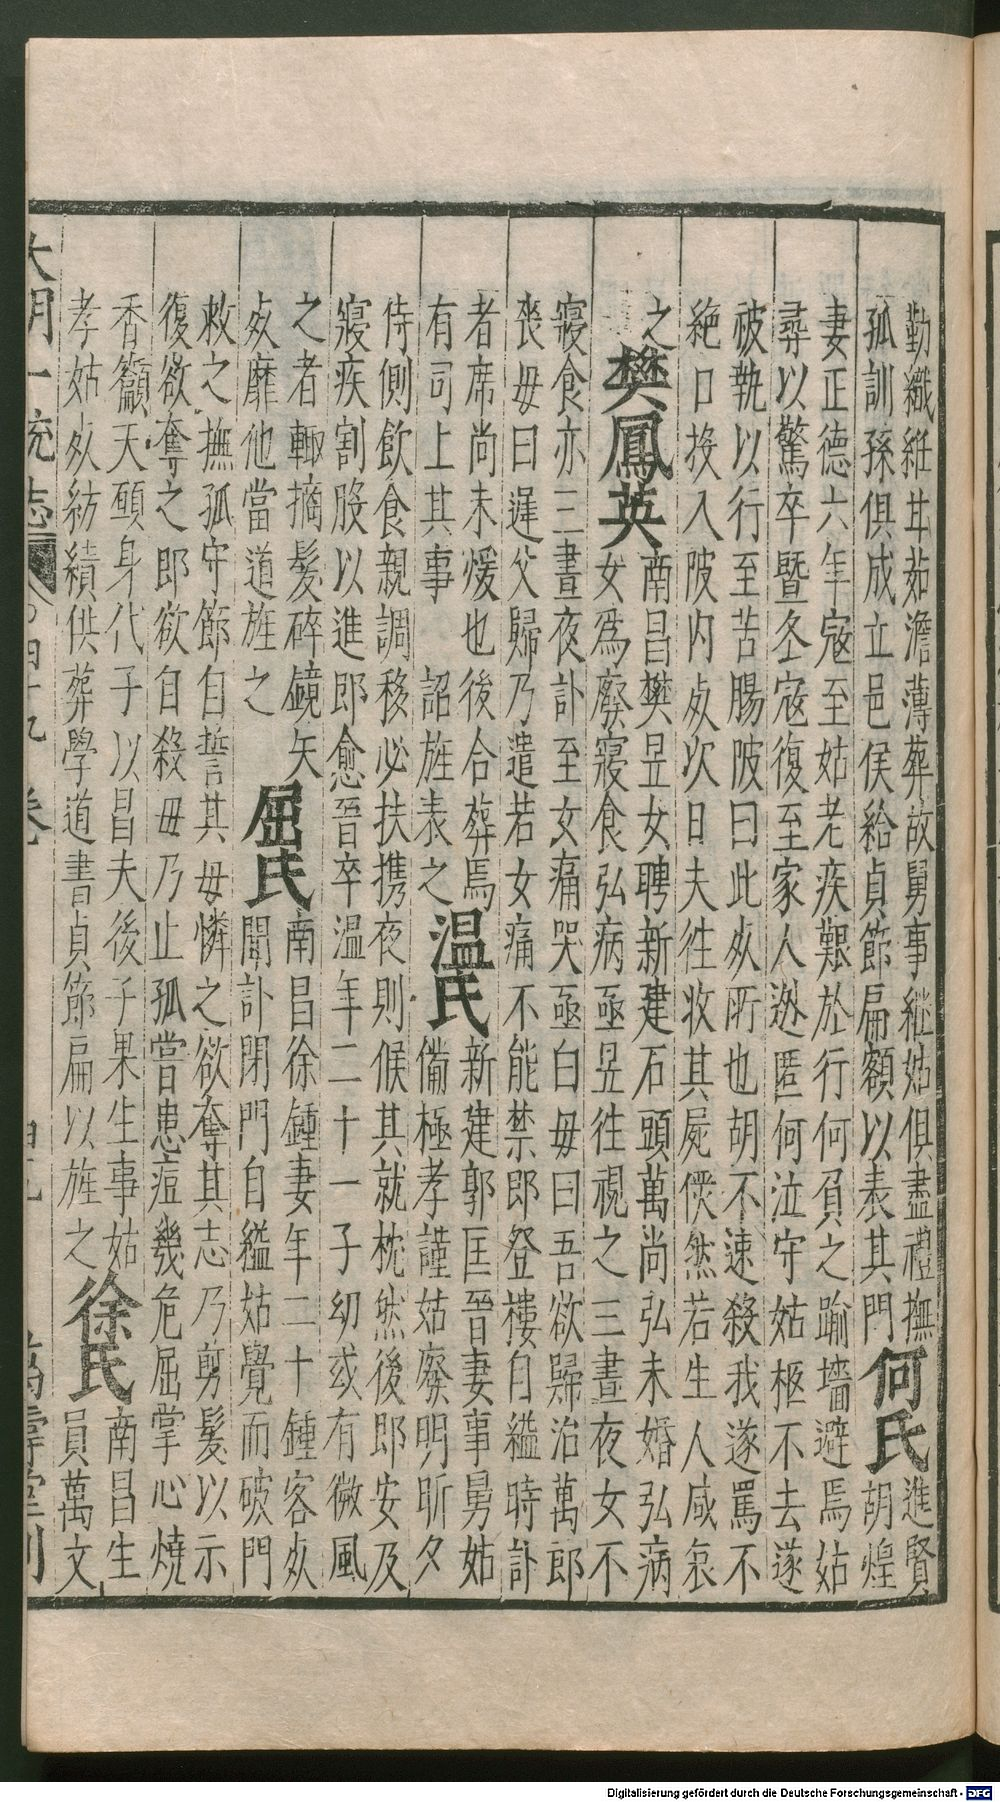 勤織紝甘茹澹薄葬故舅事繼姑俱盡禮撫
孤訓孫俱成立邑侯給貞節扁額以表其門
何氏
進賢
胡煌
妻正德六年寇至姑老疾艱於行何負之踰墻避焉姑
尋以驚卒曁冬寇復至家人逊匿何泣守姑柩不去遂
被執以行至苦腸陂曰此死所也胡不速殺我遂罵不
絶口投入陂内死次日夫徃收其屍僕然若生人咸哀
之
樊鳳英
南昌樊昱女聘新建石頭萬尚弘未婚弘病
女爲廢寢食弘病亟昱徃視之三晝夜女不
寢食亦三晝夜訃至女痛哭亟白母曰吾欲歸治萬郎
喪母曰遲父歸乃遣若女痛不能禁即登樓自縊時訃
者席尚未煖也後合葬焉
有司上其事 詔旌表之
温氏
新建郭匡晉妻事舅姑
備極孝謹姑廢明昕夕
侍側飲食親調移必扶携夜則候其就枕然後即安及
寢疾割股以進即愈晉卒温年二十一子幼或有微風
之者輙摘髮碎鏡矢
死靡他當道旌之
屈氏
南昌徐鍾妻年二十鍾客死
聞訃閉門自縊姑覺而破門
救之撫孤守節自誓其母憐之欲奪其志乃剪髮以示
復欲奪之即欲自殺母乃止孤嘗患痘幾危屈掌心燒
香籲天願身代子以昌夫後子果生事姑
孝姑死紡績供葬學道書貞節扁以旌之
徐氏
南昌生
員萬文
大明一統志 四十九 卷 萬壽堂刊
Digitalisierung gefördert durch die Deutsche Forschungsgemeinschaft - DFG